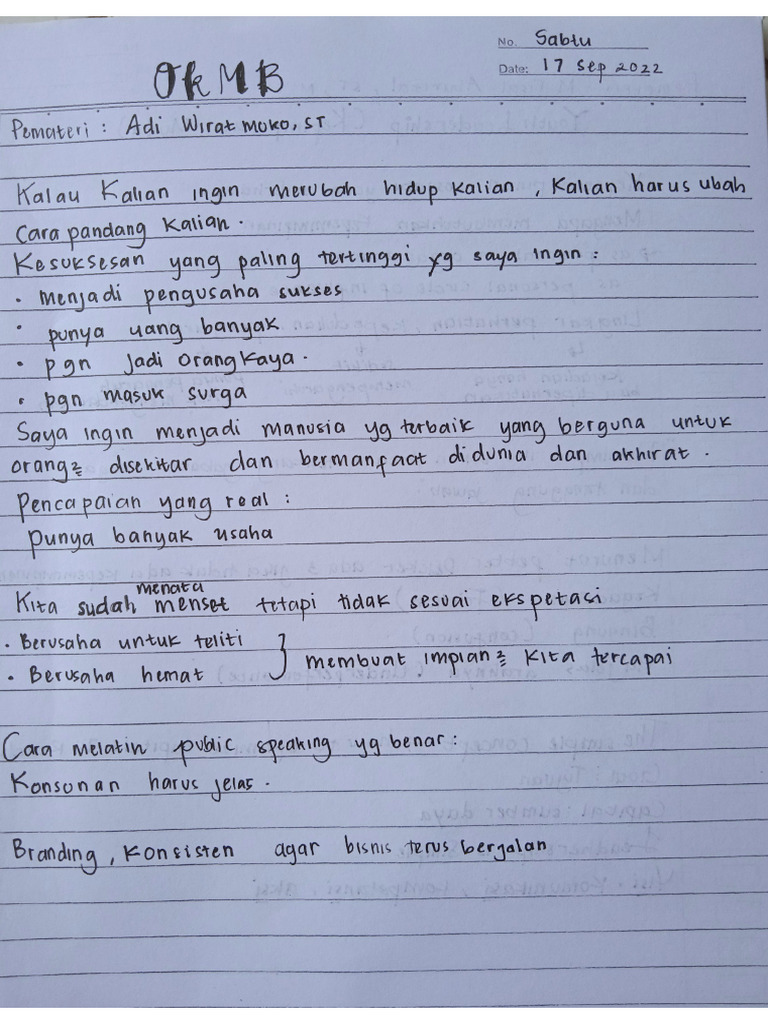 No. Sabtu
Date: 17 Sep 2022
OKMB
Pemateri : Adi Wiratmoko, ST
Kalau Kalian ingin merubah hidup kalian, Kalian harus ubah
Cara pandang Kalian.
Kesuksesan yang paling tertinggi yg saya ingin :
• menjadi pengusaha sukses
• punya uang banyak
• pgn jadi orang kaya.
• pgn masuk surga
Saya ingin menjadi manusia yg terbaik yang berguna untuk
orang2 disekitar dan bermanfaat didunia dan akhirat.
Pencapaian yang real :
punya banyak usaha
menata
Kita sudah menset tetapi tidak sesuai ekspetasi
• Berusaha untuk teliti
• Berusaha hemat } membuat impian2 Kita tercapai
Cara melatin public speaking yg benar :
Konsonan harus jelas.
Branding, Konsisten agar bisnis terus berjalan